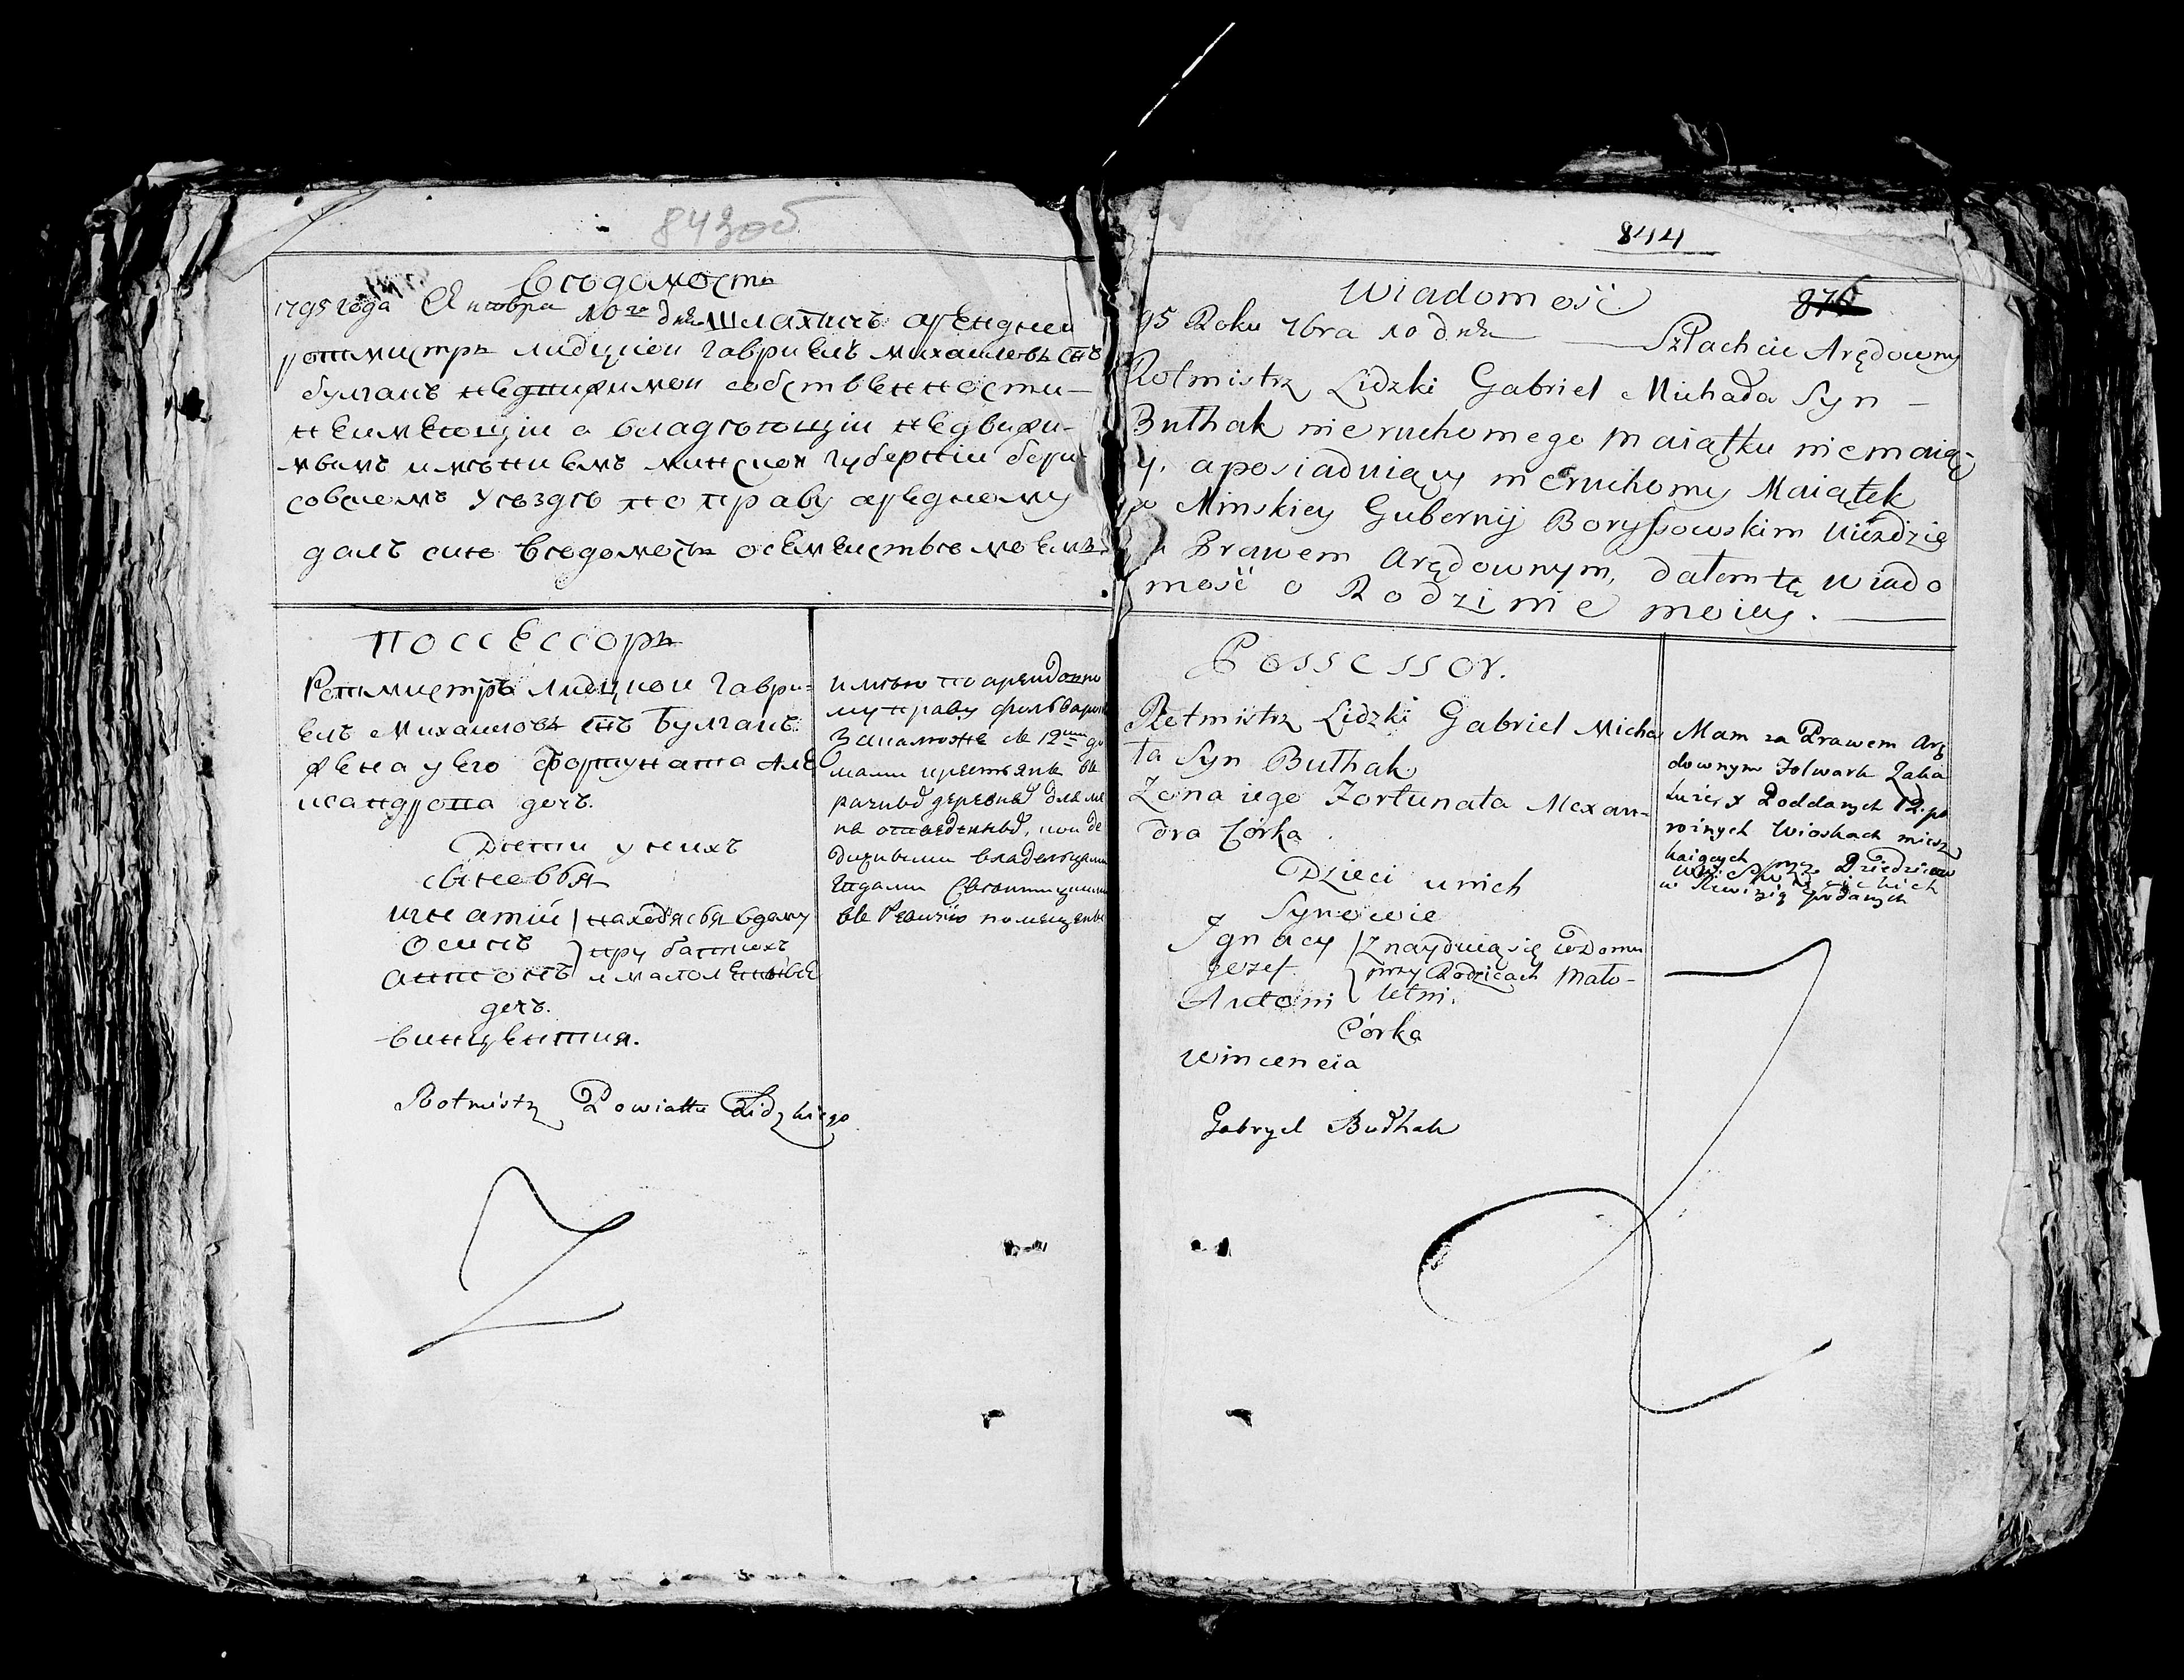 843 об
Вѣдомость
1795 года Октября 10го дня шляхтичъ арендней
ротмистръ лидцкои Гавриелъ михаиловъ снъ
булгакъ недвижимои собственности
неимеющіи а владѣющіи недвижи-
мымъ имѣниемъ минской губерніи бори
совскомъ уѣздѣ по праву аредному
далъ сию вѣдомость о семеиствѣ моемъ
поссессоръ
Ротмистръ лидцкои Гаври-
елъ Михаиловъ снъ Булгакъ
жена у его фортуната Але
ксандрова дочъ.
Дѣти у нихъ
сыновья
игнатій находятся в дому
Осипъ при батькохъ
антонъ и малолетные
дочъ.
винцентия.
имѣю по арендовно
му праву фольварокъ
Закалюже съ 12ти до
мами крестьянъ въ
разныхъ деревняхъ
въ Ревизію помещены
Rotmistrz Powiattu Lidzkiego
844
876
Wiadomość
95 Roku 10 dnia Szlachcic Arędowny
Rotmistrz Lidzki Gabriel Michała Syn
Bułhak nieruchomego maiątku niemaią
cy, a posiaduiący nieruchomy Maiątek
w Minskiey Gubernij Boryssowskim Uiezdzie
Prawem Arędownym, dałem tę wiado
mość o Rodzinie moiey.
Possessor.
Rotmistrz Lidzki Gabriel Micha
ła Syn Bułhak
Zona iego Fortunata Alexan-
dra Córka
Dzieci u nich
Synowie
Ignacy Znayduią się w Domu
Jozef przy Rodzicach Mało-
Antoni letni.
Córka
Wincencia
Mam za Prawem Arę
downym Folwark Zaka
luże, x Poddanych 12. po
roznych Wioskach miesz
kaiących przez Dziedzicow
w Rewizią podanych
Gabryel Bułhak